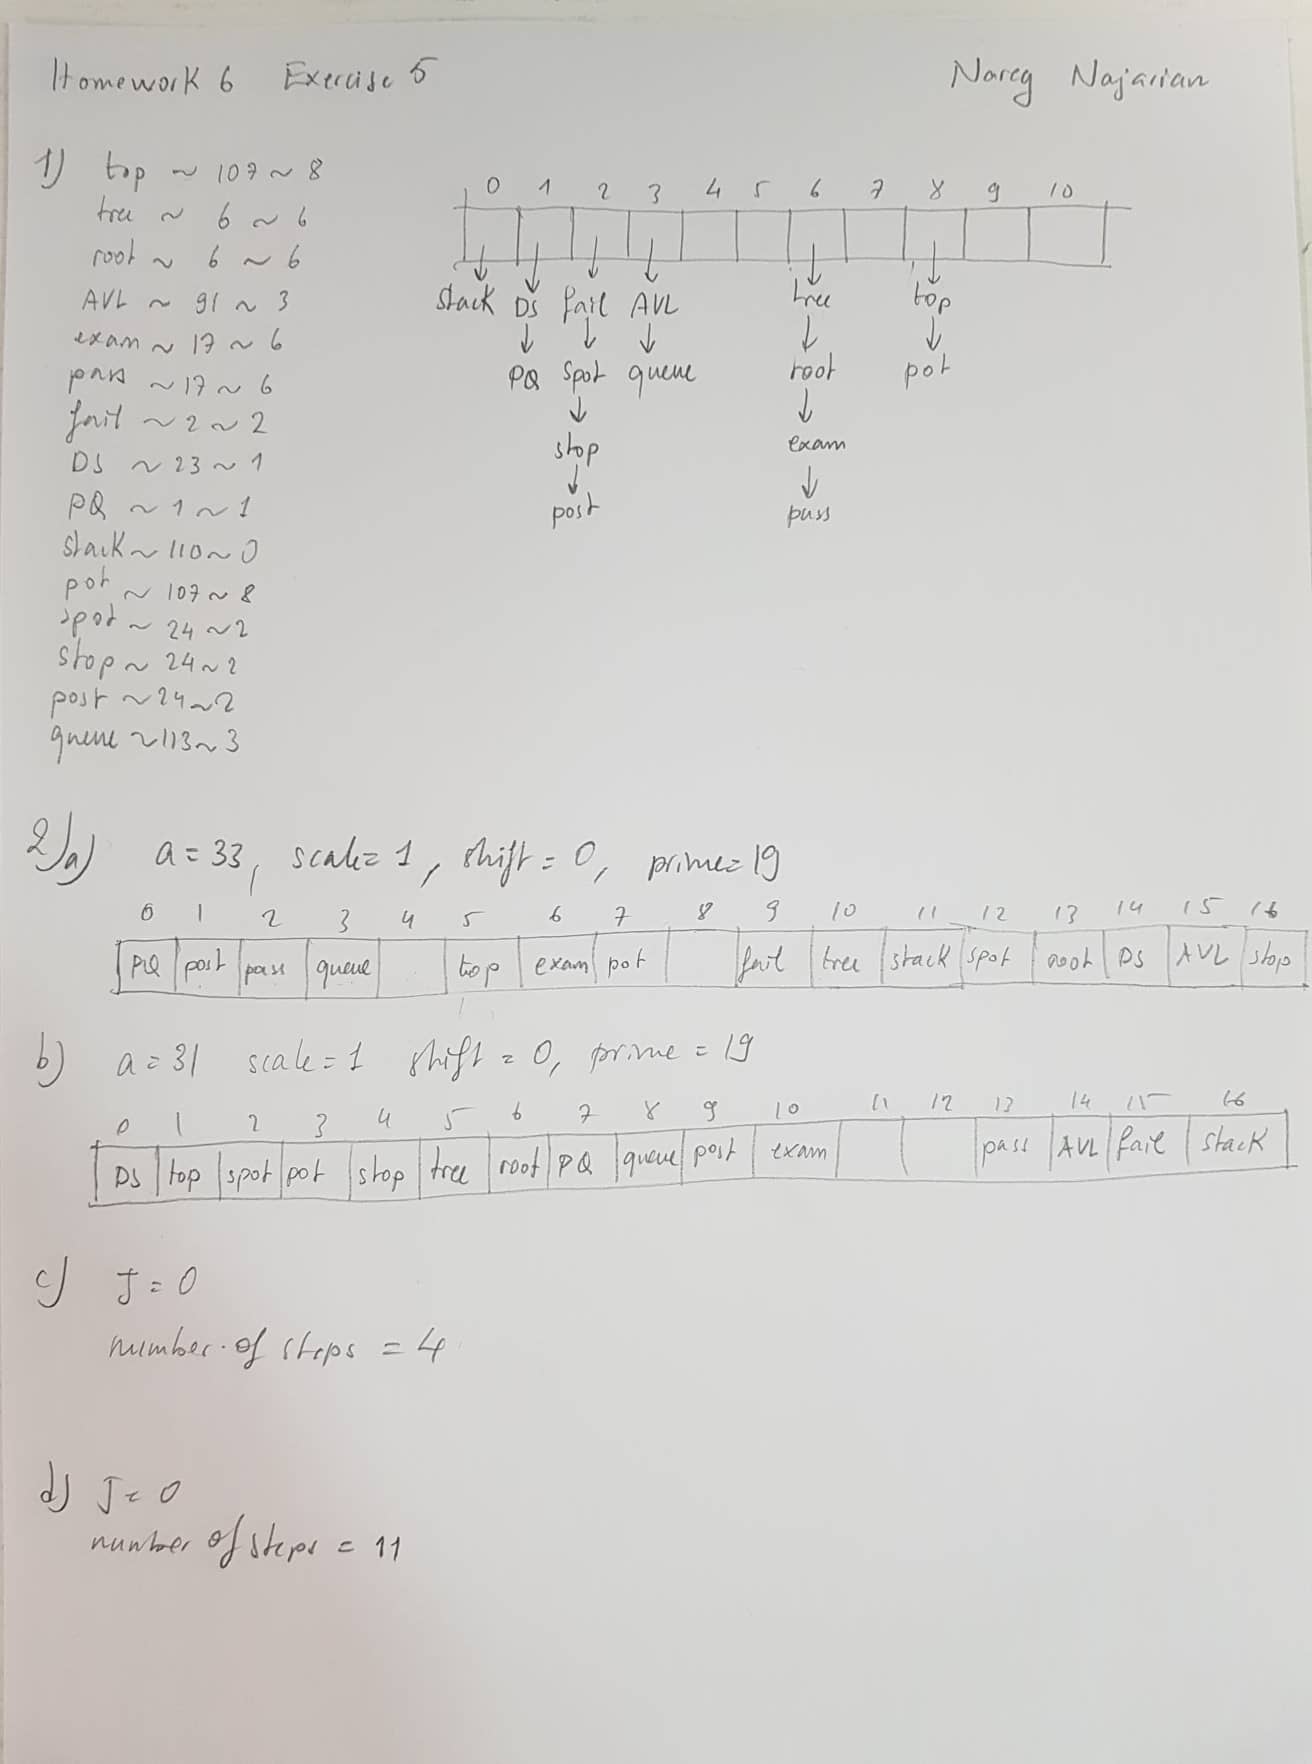 Homework 6 Exercise 5 Nareg Najarian
1) top ~ 107 ~ 8
tree ~ 6 ~ 6
root ~ 6 ~ 6
AVL ~ 91 ~ 3
exam ~ 17 ~ 6
pass ~ 17 ~ 6
fail ~ 2 ~ 2
DS ~ 23 ~ 1
PQ ~ 1 ~ 1
stack ~ 110 ~ 0
pot ~ 107 ~ 8
spot ~ 24 ~ 2
stop ~ 24 ~ 2
post ~ 24 ~ 2
queue ~ 113 ~ 3
0 1 2 3 4 5 6 7 8 9 10
stack DS fail AVL tree top
↓ ↓ ↓ ↓ ↓
PQ spot queue root pot
↓ ↓
stop exam
↓ ↓
post pass
2) a) a = 33, scale = 1, shift = 0, prime = 19
0 1 2 3 4 5 6 7 8 9 10 11 12 13 14 15 16
PQ post pass queue top exam pot fail tree stack spot root DS AVL stop
b) a = 31 scale = 1 shift = 0, prime = 19
0 1 2 3 4 5 6 7 8 9 10 11 12 13 14 15 16
DS top spot pot stop tree root PQ queue post exam pass AVL fail stack
c) J = 0
number of steps = 4
d) J = 0
number of steps = 11